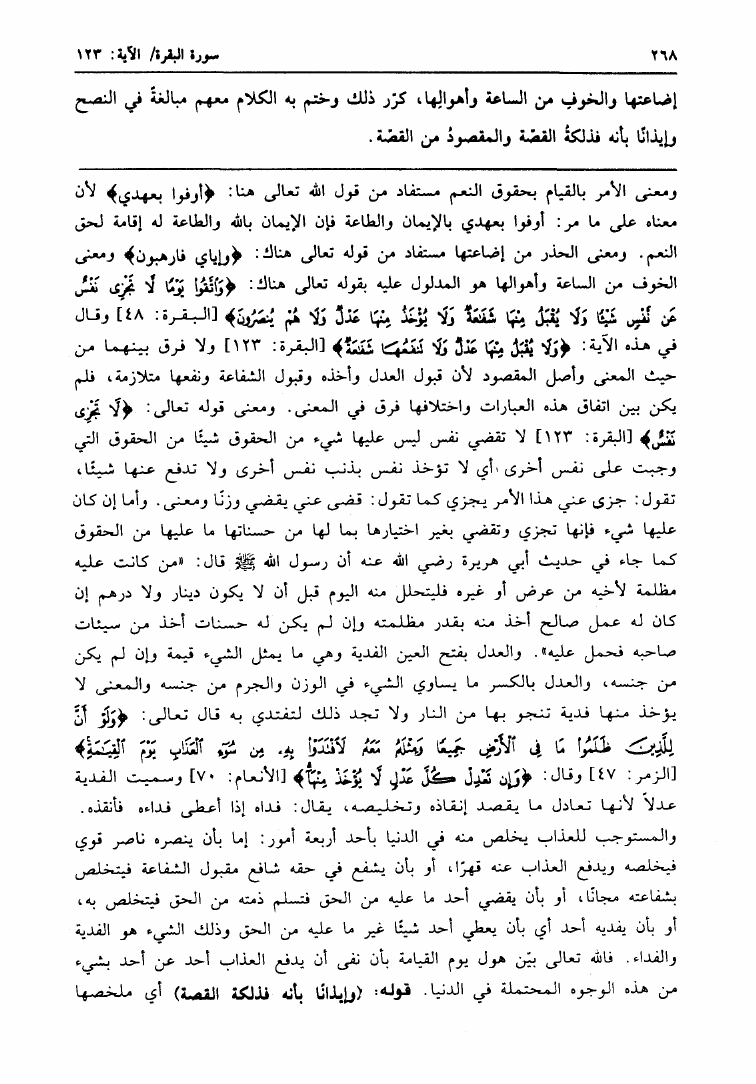 ٢٦٨ سورة البقرة/ الآية: ١٢٣
إضاعتها والخوفِ من الساعة وأهوالِها، كرّر ذلك وختم به الكلام معهم مبالغةً في النصح
وإيذانًا بأنه فذلكةُ القصّة والمقصودُ من القصّة.
ومعنى الأمر بالقيام بحقوق النعم مستفاد من قول الله تعالى هنا: ﴿أوفوا بعهدي﴾ لأن
معناه على ما مر: أوفوا بعهدي بالإيمان والطاعة فإن الإيمان بالله والطاعة له إقامة لحق
النعم. ومعنى الحذر من إضاعتها مستفاد من قوله تعالى هناك: ﴿وإياي فارهبون﴾ ومعنى
الخوف من الساعة وأهوالها هو المدلول عليه بقوله تعالى هناك: ﴿وَاتَّقُوا يَوْمًا لَّا تَجْزِى نَفْسٌ
عَن نَّفْسٍ شَيْئًا وَلَا يُقْبَلُ مِنْهَا شَفَاعَةٌ وَلَا يُؤْخَذُ مِنْهَا عَدْلٌ وَلَا هُمْ يُنصَرُونَ﴾ [البقرة: ٤٨] وقال
في هذه الآية: ﴿وَلَا يُقْبَلُ مِنْهَا عَدْلٌ وَلَا تَنفَعُهَا شَفَاعَةٌ﴾ [البقرة: ١٢٣] ولا فرق بينهما من
حيث المعنى وأصل المقصود لأن قبول العدل وأخذه وقبول الشفاعة ونفعها متلازمة، فلم
يكن بين اتفاق هذه العبارات واختلافها فرق في المعنى. ومعنى قوله تعالى: ﴿لَّا تَجْزِى
نَفْسٌ﴾ [البقرة: ١٢٣] لا تقضي نفس ليس عليها شيء من الحقوق شيئًا من الحقوق التي
وجبت على نفس أخرى أي لا تؤخذ نفس بذنب نفس أخرى ولا تدفع عنها شيئًا،
تقول: جزى عني هذا الأمر يجزي كما تقول: قضى عني يقضي وزنًا ومعنى. وأما إن كان
عليها شيء فإنها تجزي وتقضي بغير اختيارها بما لها من حسناتها ما عليها من الحقوق
كما جاء في حديث أبي هريرة رضي الله عنه أن رسول الله ﷺ قال: «من كانت عليه
مظلمة لأخيه من عرض أو غيره فليتحلل منه اليوم قبل أن لا يكون دينار ولا درهم إن
كان له عمل صالح أخذ منه بقدر مظلمته وإن لم يكن له حسنات أخذ من سيئات
صاحبه فحمل عليه». والعدل بفتح العين الفدية وهي ما يمثل الشيء قيمة وإن لم يكن
من جنسه، والعدل بالكسر ما يساوي الشيء في الوزن والجرم من جنسه والمعنى لا
يؤخذ منها فدية تنجو بها من النار ولا تجد ذلك لتفتدي به قال تعالى: ﴿وَلَوْ أَنَّ
لِلَّذِينَ ظَلَمُوا مَا فِى الْأَرْضِ جَمِيعًا وَمِثْلَهُ مَعَهُ لَافْتَدَوْا بِهِ مِن سُوءِ الْعَذَابِ يَوْمَ الْقِيَامَةِ﴾
[الزمر: ٤٧] وقال: ﴿وَإِن تَعْدِلْ كُلَّ عَدْلٍ لَّا يُؤْخَذْ مِنْهَا﴾ [الأنعام: ٧٠] وسميت الفدية
عدلاً لأنها تعادل ما يقصد إنقاذه وتخليصه، يقال: فداه إذا أعطى فداءه فأنقذه.
والمستوجب للعذاب يخلص منه في الدنيا بأحد أربعة أمور: إما بأن ينصره ناصر قوي
فيخلصه ويدفع العذاب عنه قهرًا، أو بأن يشفع في حقه شافع مقبول الشفاعة فيتخلص
بشفاعته مجانًا، أو بأن يقضي أحد ما عليه من الحق فتسلم ذمته من الحق فيتخلص به،
أو بأن يفديه أحد أي بأن يعطي أحد شيئًا غير ما عليه من الحق وذلك الشيء هو الفدية
والفداء. فالله تعالى بيّن هول يوم القيامة بأن نفى أن يدفع العذاب أحد عن أحد بشيء
من هذه الوجوه المحتملة في الدنيا. قوله: (وإيذانًا بأنه فذلكة القصة) أي ملخصها